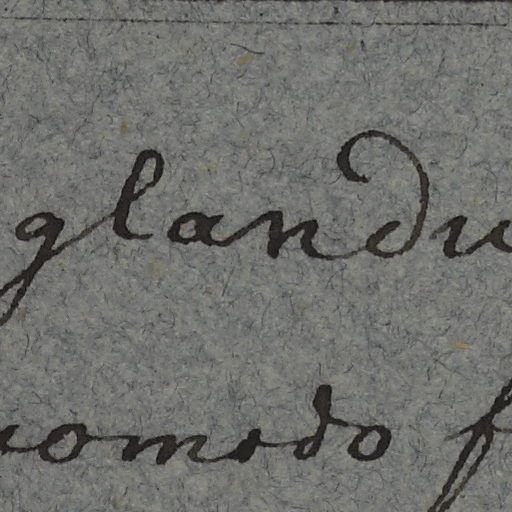 glandu
uomodo f